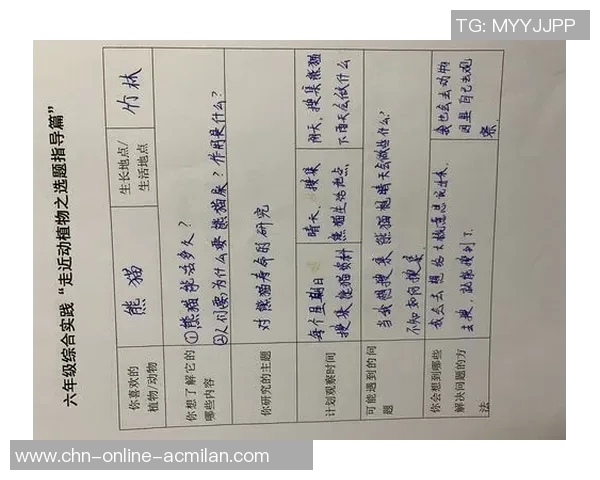 TG: MYYJJPP
六年级综合实践“走近动植物之选题指导篇”
你喜欢的
植物/动物
熊猫
生长地点/
生活地点
竹林
你想了解它的
哪些内容
①熊猫能活多久？
②人们要为什么要熊猫来？作用是什么？
你研究的主题
对熊猫寿命的研究
计划观察时间
每个星期日
搜集熊猫资料
晴天，搜集
熊猫生活地点
阴天，搜集熊猫
下雨天会做什么
可能遇到的问
题
当我想搜集熊猫晴天会做些什么？
不知如何搜集
你会想到哪些
解决问题的方
法
我会去想把大概意思说出来，
去搜，就能搜到了。
我也会去动物
园里自己去观
察。
www.chn-online-acmilan.com